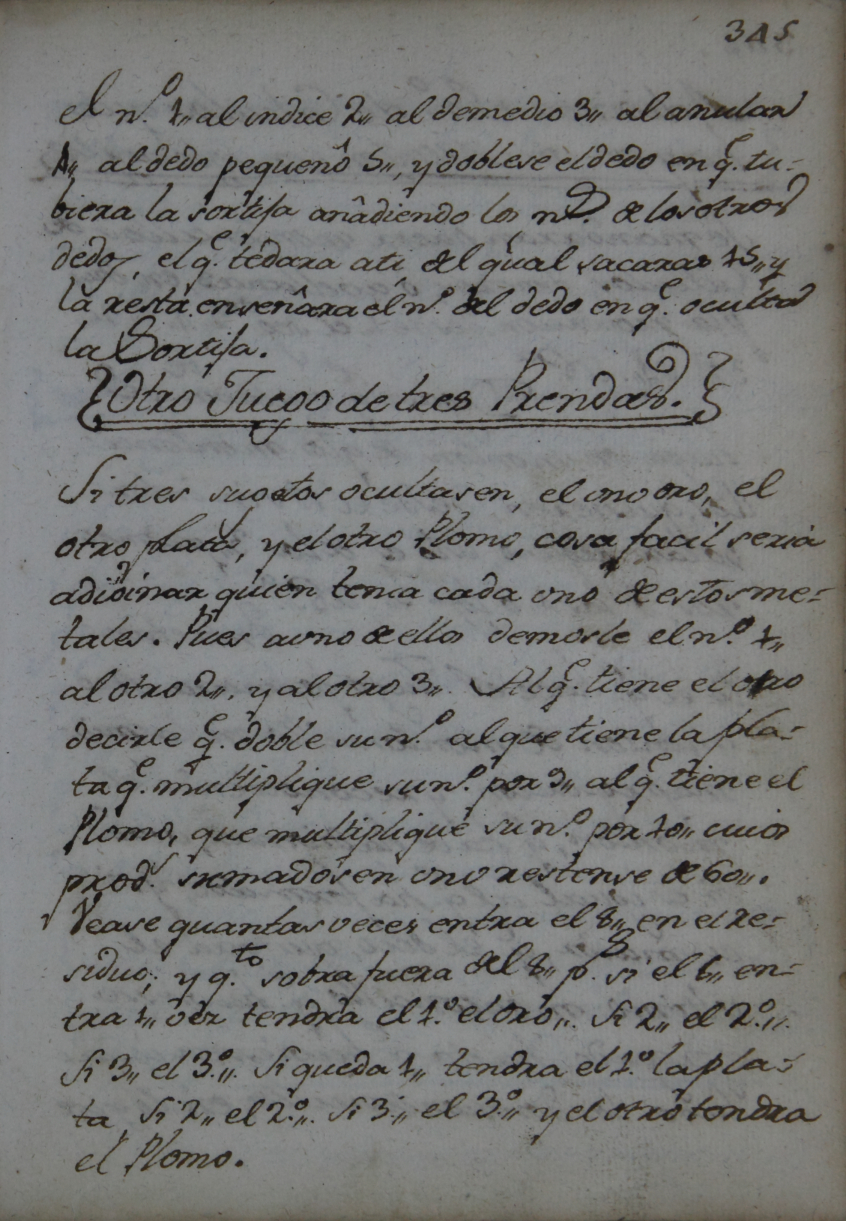 345
el n.º 1,, al indice 2,, al demedio 3,, al anular
4,, al dedo pequenô 5,, y doblese el dedo en q.e tu-
biera la sortisa anâdiendo los n.s de los otros
dedos, el q.e tedara ati del qual sacaras 15,, y
la resta ensenâra el n.º del dedo en q.e oculta
la Sortisa.
Otro Juego de tres Prendas.
Si tres sugetos ocultasen, el uno oro, el
otro plata, y el otro Plomo, cosa facil seria
adivinar quien tenia cada uno de estos me-
tales. Pues a uno de ellos demosle el n.º 1,,
al otro 2,, y al otro 3,,. Al q.e tiene el oro
decirle q.e doble su n.º al que tiene la pla-
ta q.e multiplique su n.º por 9,, al q.e tiene el
Plomo, que multiplique su n.º por 10,, cuios
prod.s sumados en uno restense de 60,,.
Vease quantas veces entra el 8,, en el re-
siduo; y q.to sobra fuera del 8,, p.s si el 8,, en-
tra 1,, vez tendra el 1.º el oro,,. Si 2,, el 2.º,,.
Si 3,, el 3.º,,. Si queda 1,, tendra el 1.º la pla-
ta Si 2,, el 2.º,,. Si 3,, el 3.º,, y el otro tendra
el Plomo.